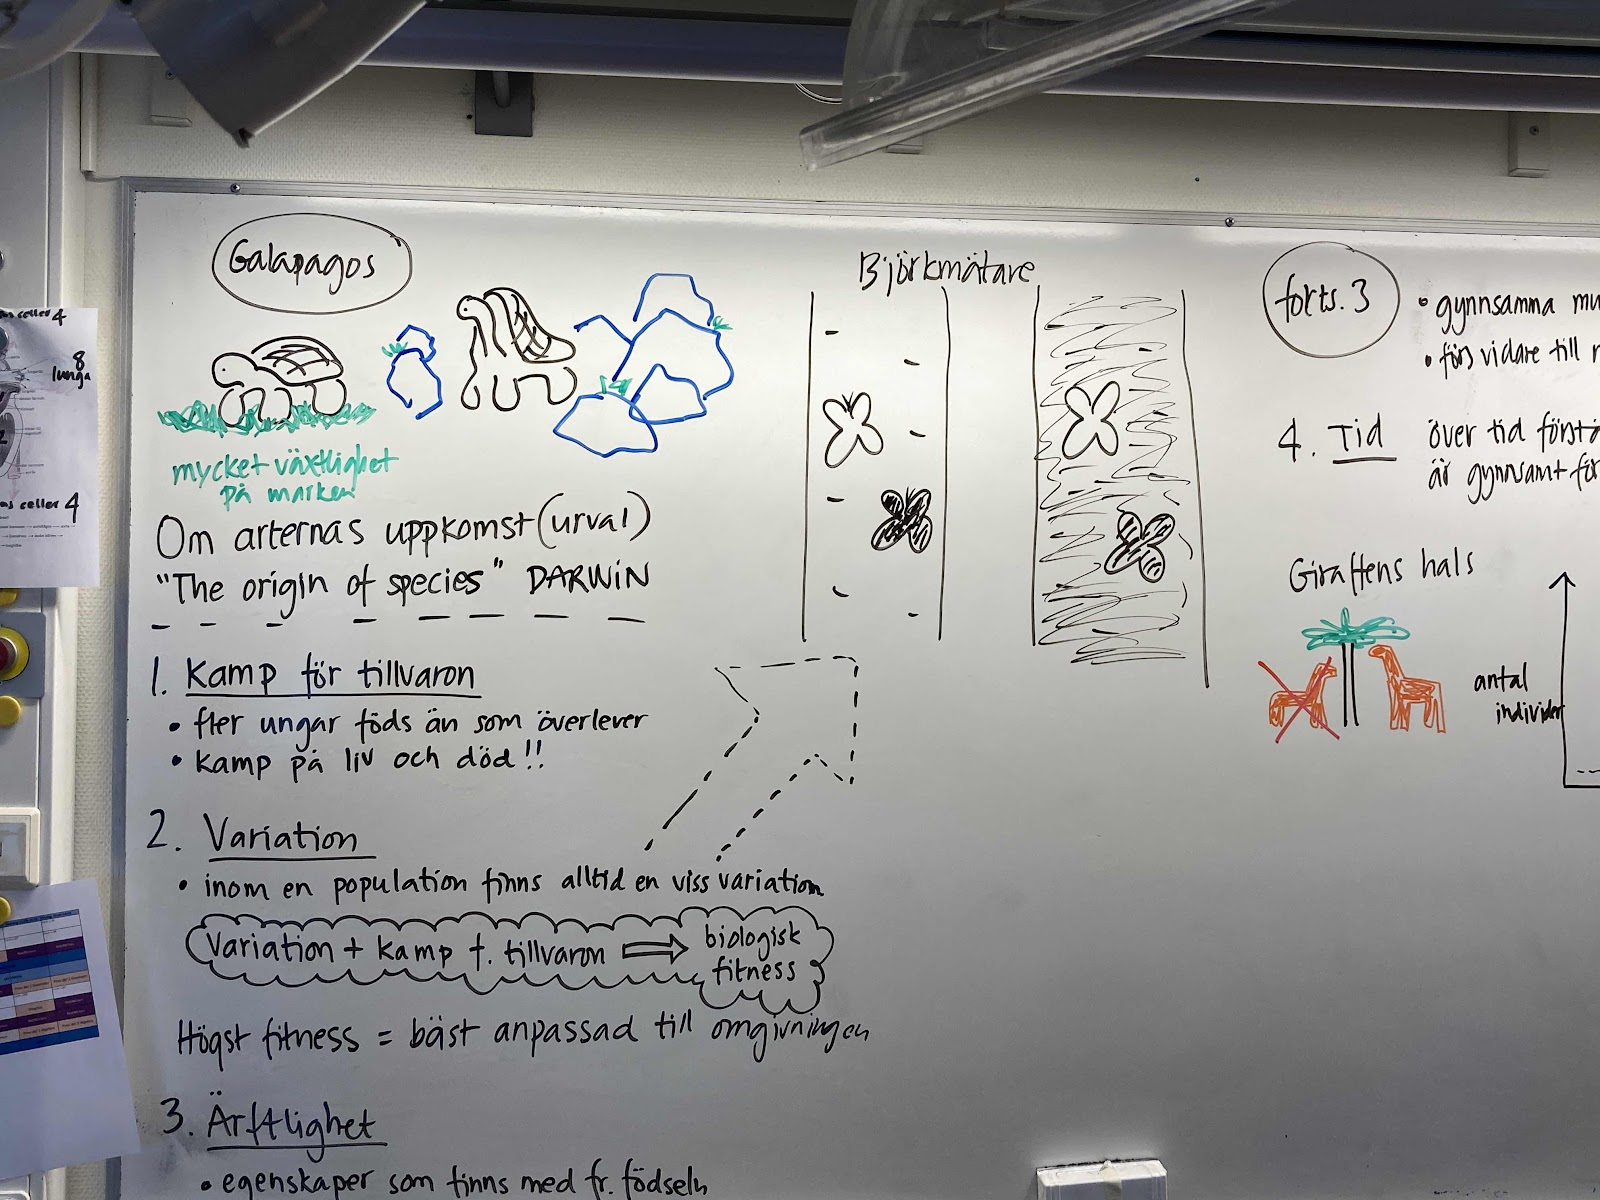 Galapagos
mycket växtlighet
på marken
Om arternas uppkomst (urval)
"The origin of species" DARWIN
1. Kamp för tillvaron
• fler ungar föds än som överlever
• kamp på liv och död!!
2. Variation
• inom en population finns alltid en viss variation
Variation + kamp f. tillvaron ⇒ biologisk
fitness
Högst fitness = bäst anpassad till omgivningen
3. Ärftlighet
• egenskaper som finns med fr. födseln
Björkmätare
forts. 3
• gynnsamma mu
• förs vidare till
4. Tid över tid förstä
är gynnsamt för
Giraffens hals
antal
individer
celler 4
8
lunga
celler 4